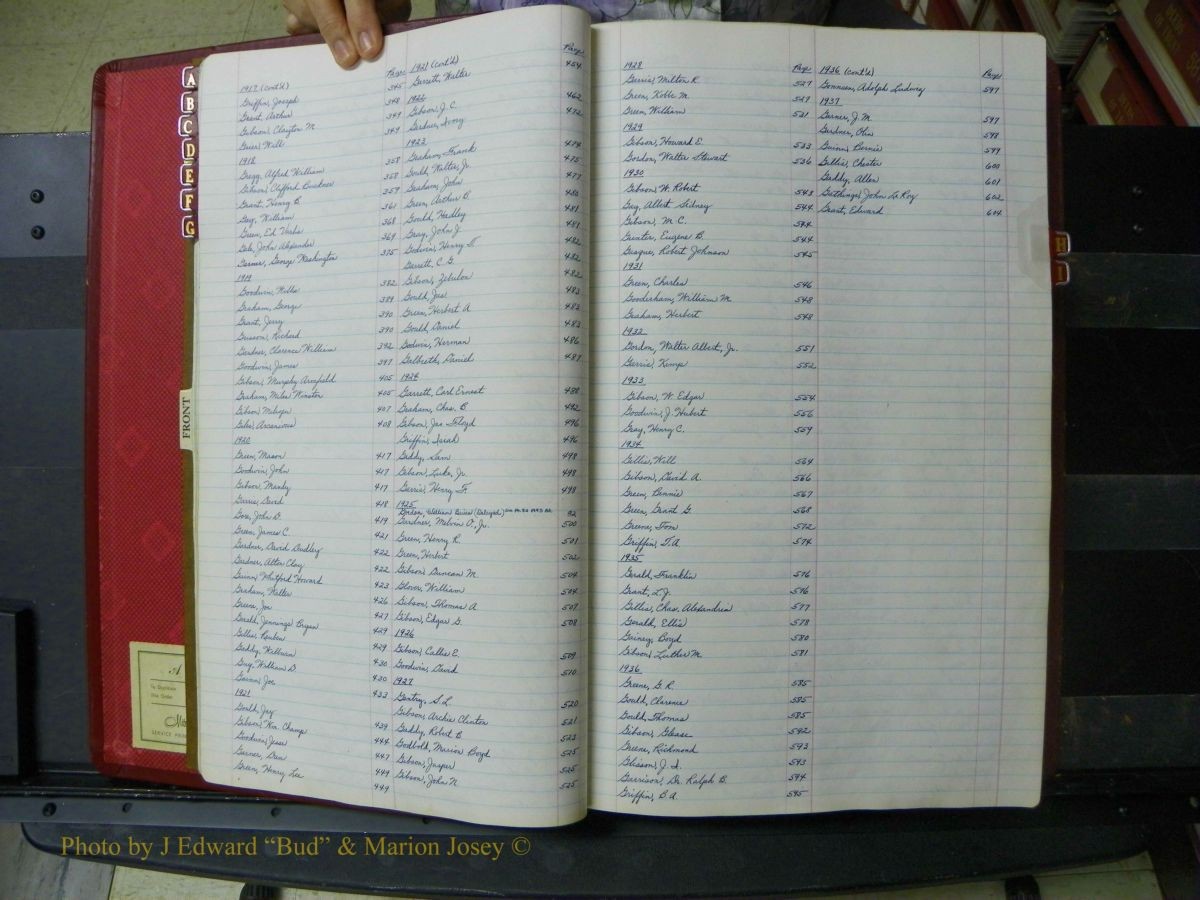 A
B
C
D
E
F
G
FRONT
A
To Duplicate
this Order
SERVICE
Page
1917 (cont'd)
Griffin, Joseph 345
Grant, Arthur 348
Gibson, Clayton M. 349
Will 349
1918
Gregg, Alfred William 358
Gibson, Clifford 358
Grant, Henry B. 359
Guy, William 361
Green, Ed 368
Gale, John Alexander 369
Garner, George Washington 375
1919
Goodwin, Willie 382
Graham, George 389
Grant, Jerry 390
Richard 390
Gardner, Clarence William 392
Goodwin, James 397
Gibson, Murphy 405
Graham, Miles Winston 405
Gibson 407
Giles, 408
1920
Green, Mason 417
Goodwin, John 417
Gibson, Mandy 417
David 418
John D. 419
Green, James C. 421
Gardner, David Dudley 422
Gardner, Alter Clay 422
Whitford Howard 423
Graham, Walter 426
Greene, Joe 427
Gerald, Jennings Bryan 429
Gillis, Reuben 429
Geddy, Wilburn 430
Guy, William D. 430
Joe 433
1921
Gould, Jay 439
Gibson, Wm. Champ 444
Goodwin, Jesse 447
Garner, 449
Green, Henry Lee 449
Page
1921 (cont'd)
Garrett, Walter 454
1922
Gibson, J. C. 462
Gardner, Ivory 472
1923
Graham, Frank 474
Gould, Walter, Jr. 475
Graham, John 477
Green, Arthur B. 480
Gould, Hadley 481
Gray, John J. 481
Godwin, Henry 482
Garrett, C. G. 482
Gibson, Zebulon 482
Gould, Jas. 483
Green, Herbert A. 483
Gould, Daniel 483
Godwin, Herman 486
Galbreth, Daniel 487
1924
Garrett, Carl Ernest 488
Graham, Chas. B. 492
Gibson, Jas. Floyd 496
Griffin, Isiah 496
Geddy, Sam 498
Gibson, Luke, Jr. 498
Gerris, Henry F. 498
1925
William (Delayed) 92
Gardner, Melvin O., Jr. 500
Green, Henry R. 501
Green, Herbert 502
Gibson, Duncan M. 504
Glover, William 504
Gibson, Thomas A. 507
Gibson, Edgar G. 508
1926
Gibson, Callie E. 509
Goodwin, David 510
1927
Gentry, S. L. 520
Gibson, Archie Clinton 521
Geddy, Robert B. 523
Godbold, Marion Boyd 525
Gibson, Jasper 525
Gibson, John N. 525
Page
1928
Gerris, Milton R. 527
Green, Kobbe M. 527
Green, William 531
1929
Gibson, Howard E. 533
Gordon, Walter Stewart 536
1930
Gibson, W. Robert 543
Guy, Albert Sidney 544
Gibson, M. C. 544
Gunter, Eugene B. 544
Gasque, Robert Johnson 545
1931
Green, Charles 546
Gooderham, William M. 548
Graham, Herbert 548
1932
Gordon, Walter Albert, Jr. 551
Gerris, Kemp 552
1933
Gibson, W. Edgar 554
Goodwin, J. Hubert 556
Gray, Henry C. 559
1934
Gillis, Will 564
Gibson, David A. 566
Green, Bennie 567
Green, Grant G. 568
Greene, Tom 572
Griffin, T. A. 574
1935
Gerald, Franklin 576
Grant, L. J. 576
Gillis, Chas. Alexandria 577
Gerald, Ellis 578
Gainey, Boyd 580
Gibson, Luther M. 581
1936
Greene, G. R. 585
Gould, Clarence 585
Gould, Thomas 585
Gibson, Glease 592
Greene, Richmond 593
Glisson, J. I. 593
Garrison, Dr. Ralph B. 594
Griffin, B. A. 595
Page
1936 (cont'd)
Adolph Ludwig 597
1937
Garner, J. M. 597
Gardner, Otis 598
Guinn, Bernie 599
Gillis, Chester 600
Geddy, Allen 601
John LeRoy 602
Grant, Edward 604
H
I
Photo by J Edward “Bud” & Marion Josey ©